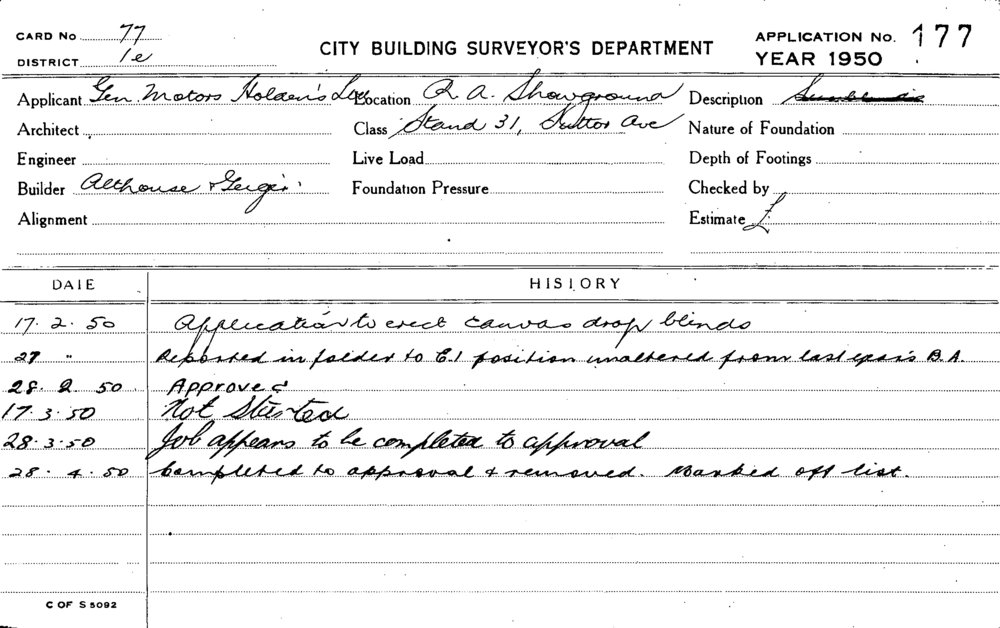 CARD No 77
DISTRICT 1e
CITY BUILDING SURVEYOR'S DEPARTMENT
APPLICATION No. 177
YEAR 1950
Applicant Gen. Motors Holden's Ltd Location R. A. Showground Description Sunblinds
Architect Class Stand 31, Suttor Ave Nature of Foundation
Engineer Live Load Depth of Footings
Builder Althouse & Geiger Foundation Pressure Checked by
Alignment Estimate £
DATE HISTORY
17. 2. 50 Application to erect canvas drop blinds
27 " Reported in folder to E.1 position unaltered from last year's B.A.
28. 2. 50 Approved
17. 3. 50 Not Started
28. 3. 50 Job appears to be completed to approval
28. 4. 50 Completed to approval & removed. Marked off list.
C OF S 5092